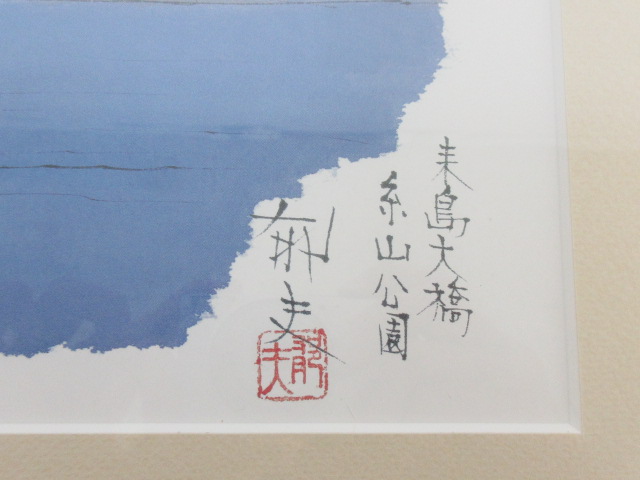 来島大橋
糸山公園
郁夫
郁夫